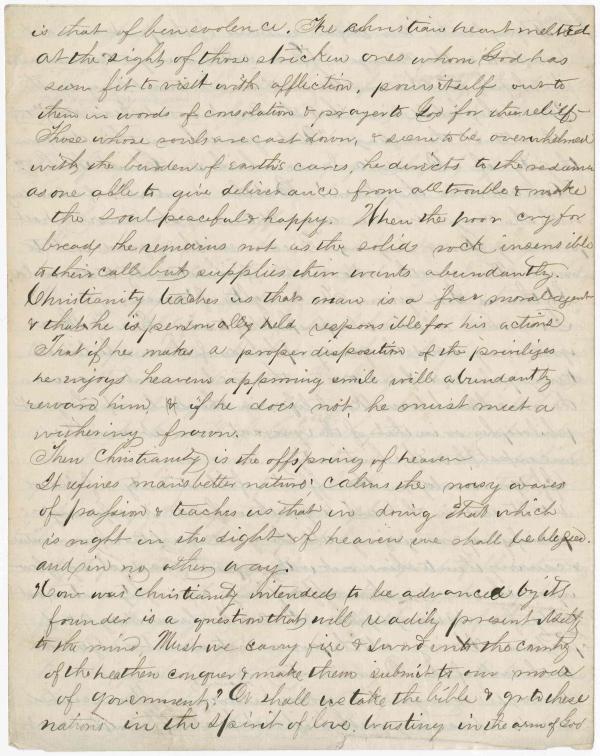 is that of benevolence. The christian heart melted
at the sight of those stricken ones whom God has
seen fit to visit with affliction, pours itself out to
them in words of consolation & prayer to God for their relief
Those whose souls are cast down, & seem to be overwhelmed
with the burden of earth's cares, he directs to the redeemer
as one able to give deliverance from all trouble & make
the soul peaceful & happy. When the poor cry for
bread he remains not as the solid rock insensible
to their call but supplies their wants abundantly.
Christianity teaches us that man is a free moral agent
& that he is personally held responsible for his actions
That if he makes a proper disposition of the privileges
he enjoys heavens approving smile will abundantly
reward him, & if he does not he must meet a
withering frown.
Then Christianity is the offspring of heaven
It refines man's better nature calms the noisy waves
of passion & teaches us that in doing that which
is right in the sight of heaven we shall be blessed.
and in no other way.
How was christianity intended to be advanced by its
founder is a question that will readily present itself
to the mind. Must we carry fire & sword into the country
of the heathen conquer & make them submit to our mode
of government? Or shall us take the bible & go to these
nations in the spirit of love, trusting in the arm of God